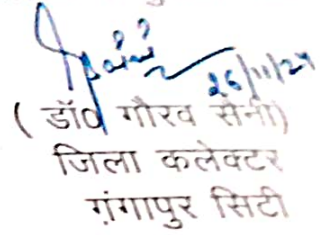 26/11/24
( डॉ० गौरव सैनी)
जिला कलेक्टर
गंगापुर सिटी